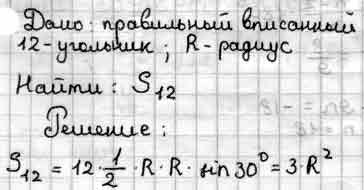 Дано: правильный вписанный
12-угольник; R-радиус
Найти: S₁₂
Решение:
S₁₂ = 12 · 1/2 · R · R · sin 30⁰ = 3 · R²